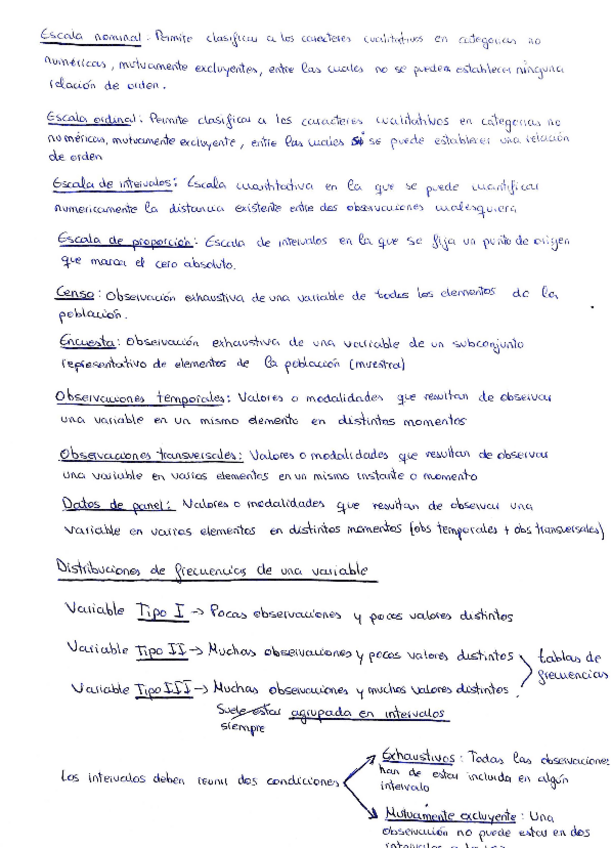 Escala nominal: Permite clasificar a los caracteres cualitativos en categorías no
numéricas, mutuamente excluyentes, entre las cuales no se pueden establecer ninguna
relación de orden.
Escala ordinal: Permite clasificar a los caracteres cualitativos en categorias no
numéricas, mutuamente excluyente, entre las cuales sí se puede establecer una relación
de orden
Escala de intervalos: Escala cuantitativa en la que se puede cuantificar
numericamente la distancia existente entre dos observaciones cualesquiera
Escala de proporción: Escala de intervalos en la que se fija un punto de origen
que marca el cero absoluto.
Censo: Observación exhaustiva de una variable de todos los elementos de la
población.
Encuesta: Observación exhaustiva de una variable de un subconjunto
representativo de elementos de la población (muestra)
Observaciones temporales: Valores o modalidades que resultan de observar
una variable en un mismo elemento en distintos momentos
Observaciones transversales: Valores o modalidades que resultan de observar
una variable en varios elementos en un mismo instante o momento
Datos de panel: Valores o modalidades que resultan de observar una
variable en varios elementos en distintos momentos (obs temporales + obs transversales)
Distribuciones de frecuencias de una variable
Variable Tipo I → Pocas observaciones y pocos valores distintos
Variable Tipo II → Muchas observaciones y pocos valores distintos
tablas de
frecuencias
Variable Tipo III → Muchas observaciones y muchos valores distintos.
Suele estar agrupada en intervalos
siempre
Los intervalos deben reunir dos condiciones
Exhaustivos: Todas las observaciones
han de estar incluida en algún
intervalo
Mutuamente excluyente: Una
observación no puede estar en dos
intervalos a la